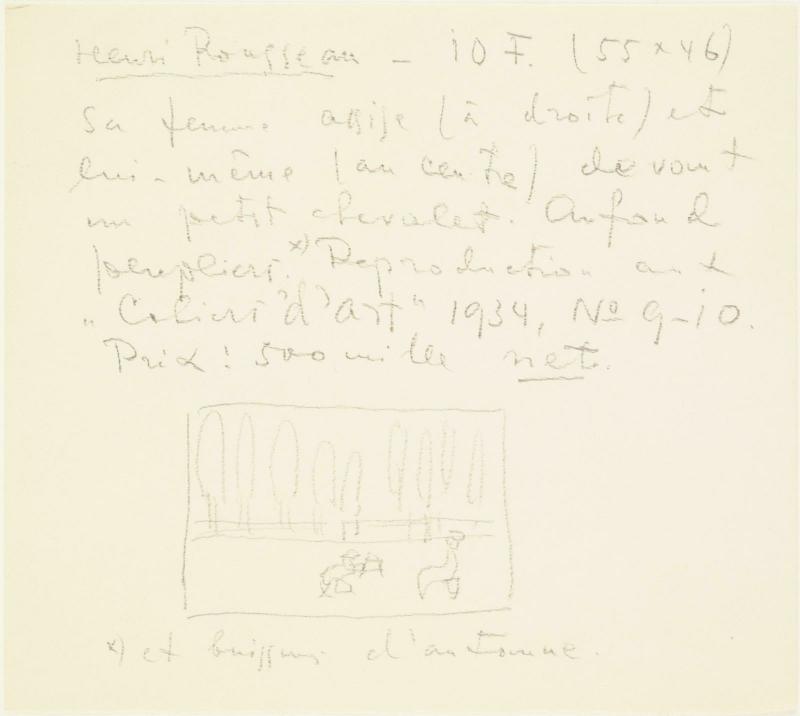 Henri Rousseau – 10 F. (55 x 46)
Sa femme assise (à droite) et
lui-même (au centre) devant
un petit chevalet. Au fond
peupliers.x) Reproduction aux
„Cahiers d'art" 1934, No 9–10.
Prix : 500 mille net.
x) et buissons d'automne.